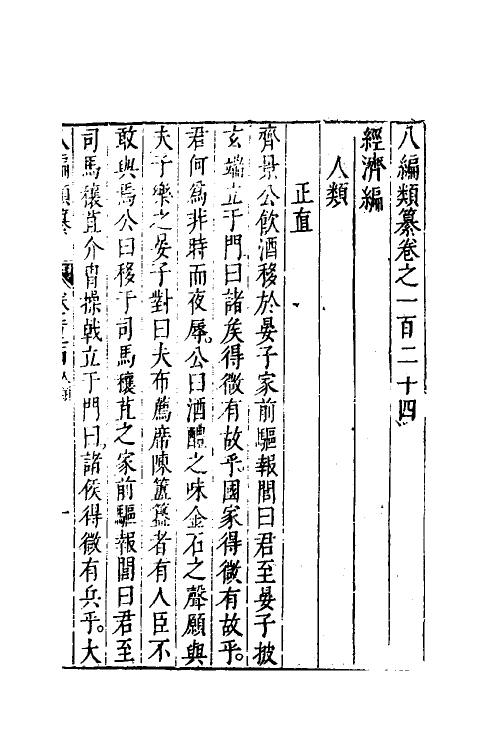 八編類纂卷之一百二十四
經濟編
人類
正直
齊景公飲酒移於晏子家前驅報閭曰君至晏子披
玄端立于門曰諸矦得微有故乎國家得微有故乎。
君何為非時而夜辱。公曰酒醴之味金石之聲願與
夫子樂之晏子對曰夫布薦席陳簠簋者有人臣不
敢與焉公曰移于司馬穰苴之家前驅報閭曰君至
司馬穰苴介冑操戟立于門曰諸侯得微有兵乎。大
八編類纂